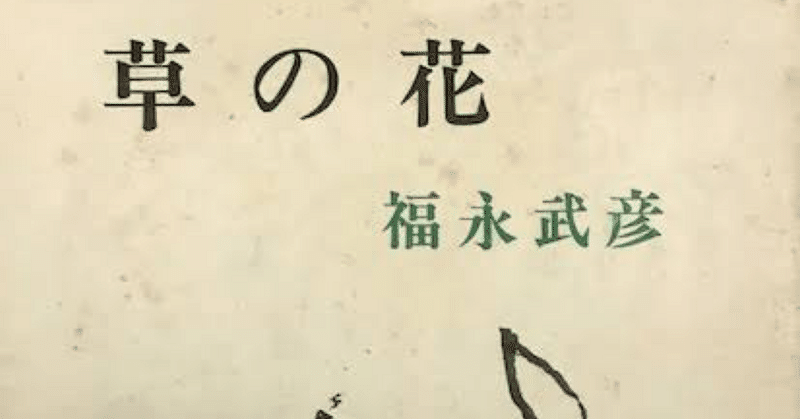 草の花
福永武彦